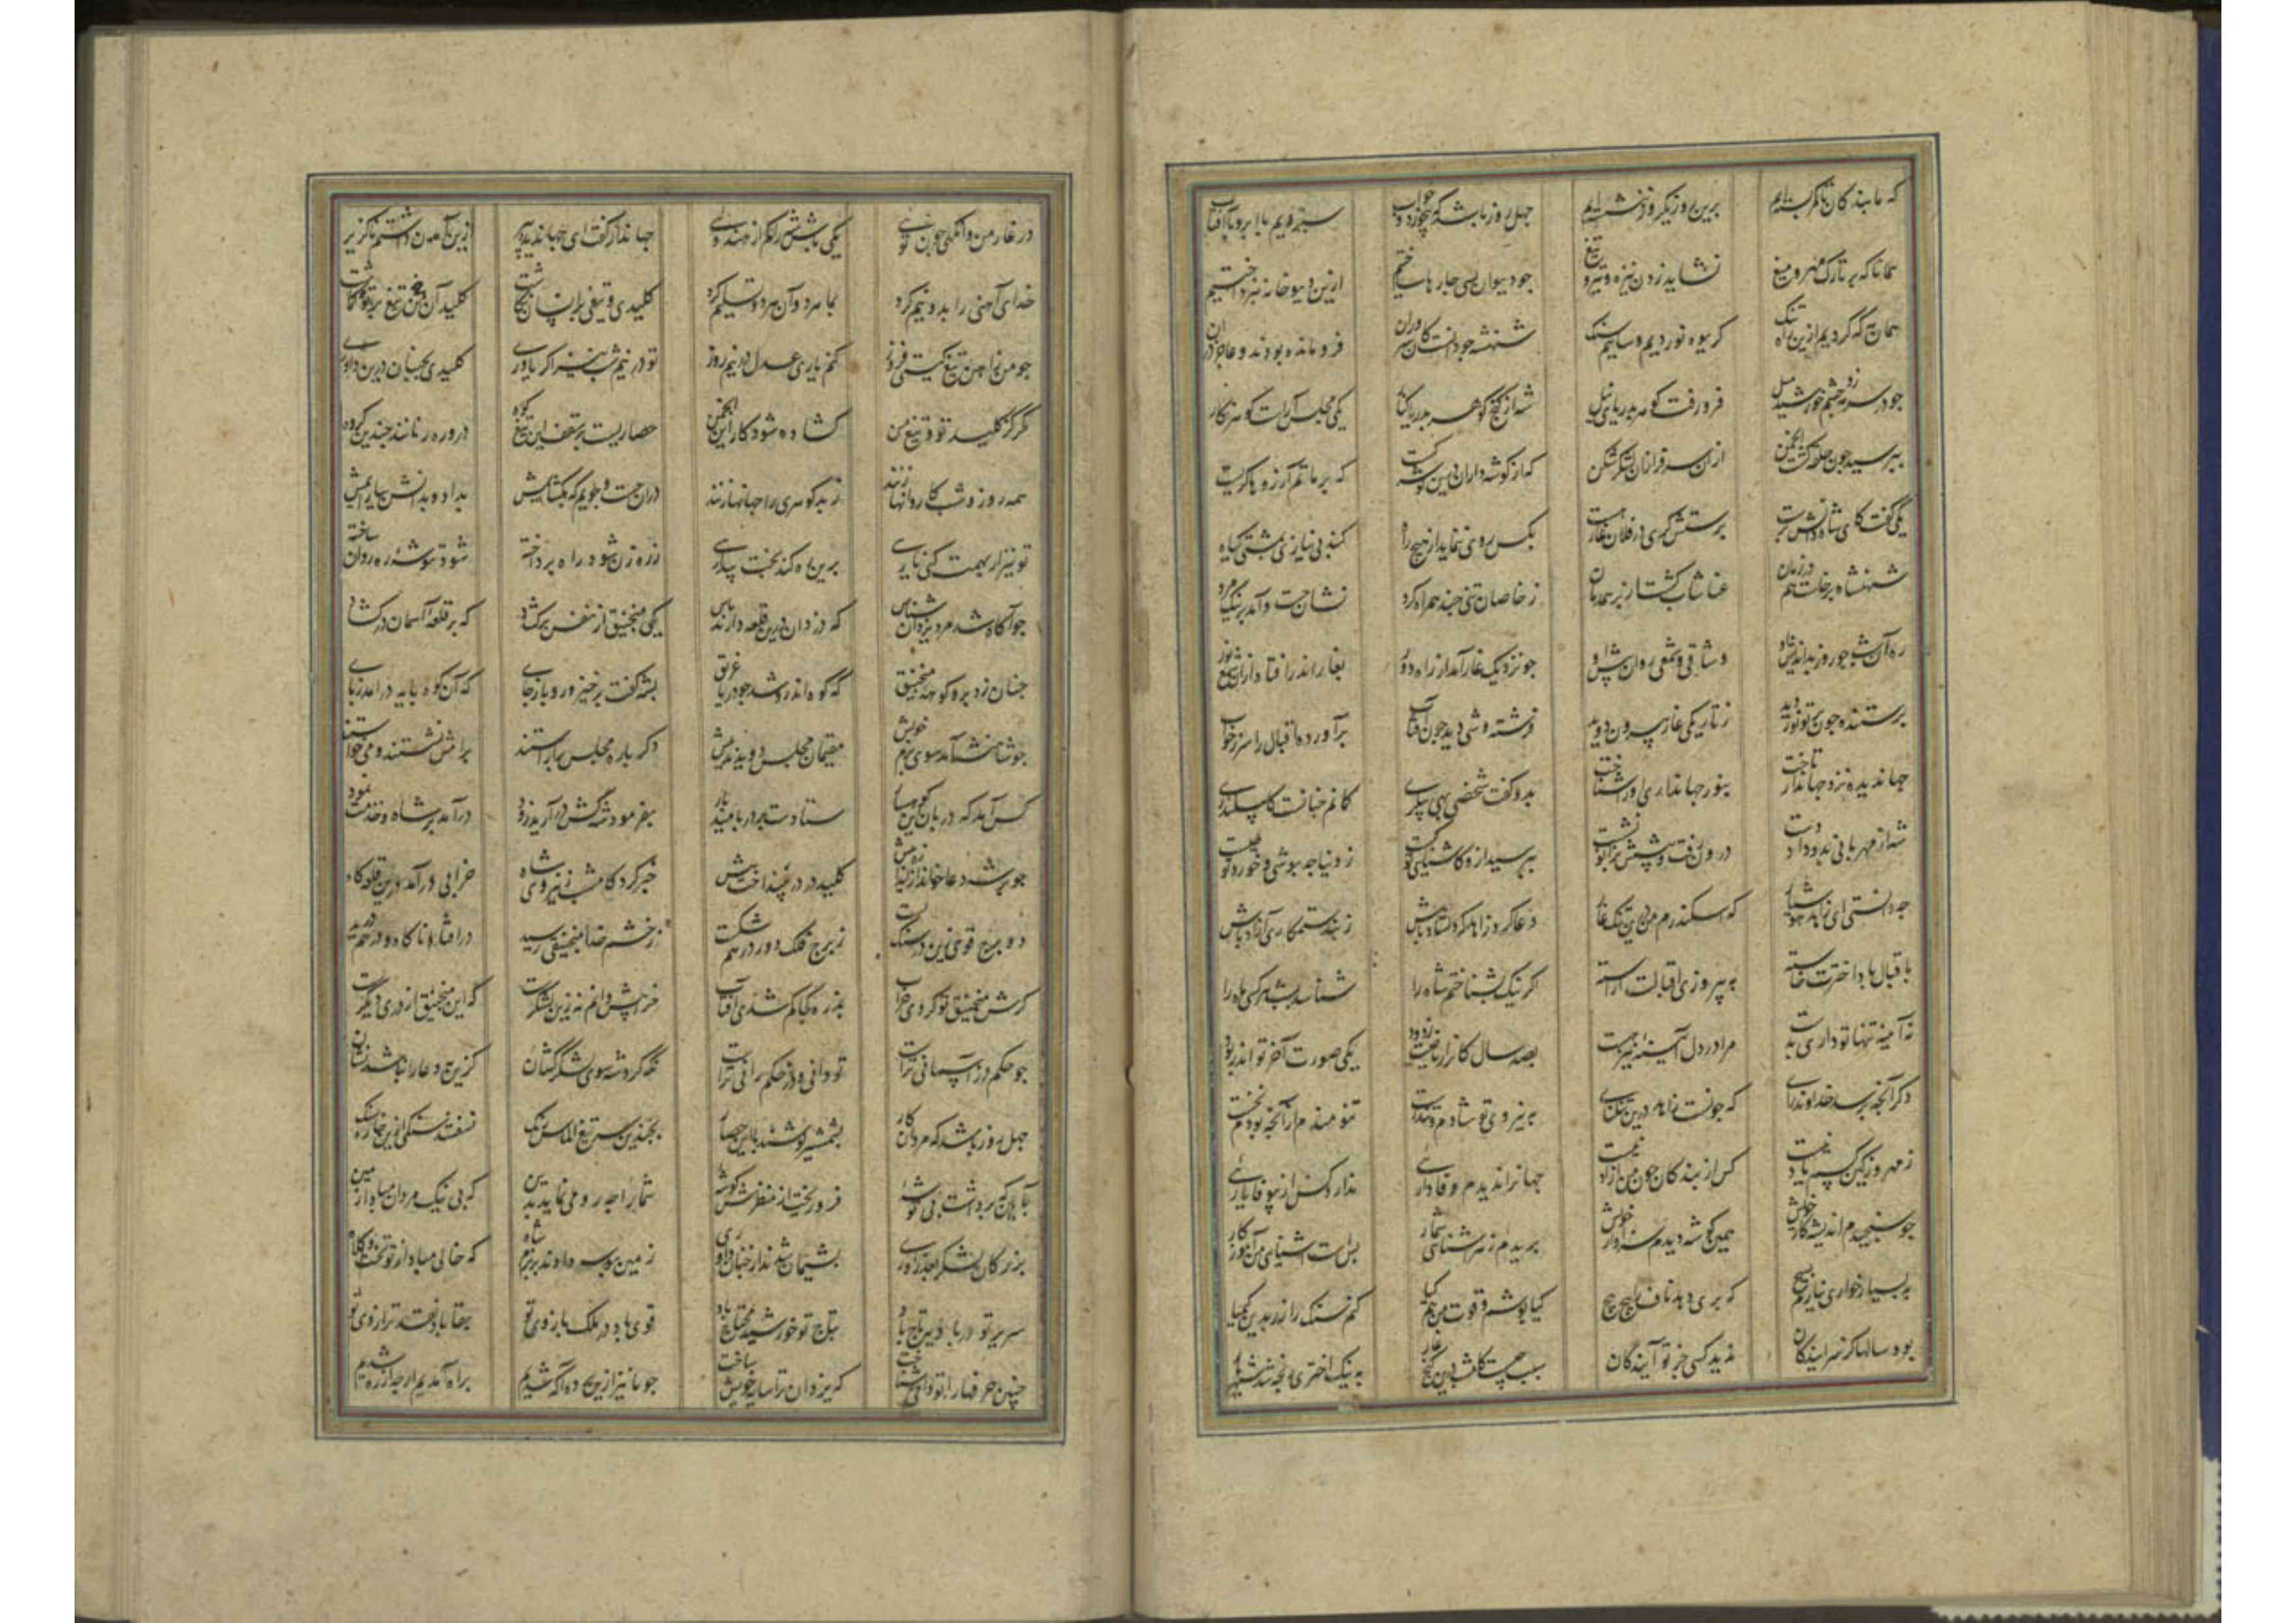 که ما بندکان تا کمر بسته‌ایم برین دز یکی روز ننشسته‌ایم چهل روز باشد که بیخورد و خواب ستیزیم با ابر و با آفتاب
همانا که بر تارک مهر و میغ نشاید زدن نیزه و تیر و تیغ جو دیوان بسی جارها ساختیم ازین دیوخانه نبرداختیم
همان به که کردیم ازین راه تنک کریوه نوردیم و ساییم سنک شهنشه جو دانست کان سروران فرومانده بودند و عاجز دران
جو در سرمه زد چشم خورشید میل فرو رفت کوهر بدریای نیل شه از کنج کوهر بدریا کنار یکی مجلس آراست کوهر نکار
ببرسید جون حلقه کشت انجمن ازان سرفرازان لشکر شکن که از کوشه داران درین کوشه کیست که بر ماتم آرزوها کریست
یکی گفت کای شاه دانش برست برستش کری در فلان غار هست بکس روی ننماید از هیچ راه کند بی نیازی بمشتی کیاه
شهنشاه برخاست هم در زمان عنان تاب کشت از بر همدمان ز خاصان تنی چند همراه کرد نشان جست و آمد بر نیک مرد
ره آن شب جو روز بداندیش بود وشاقی و شمعی روان پیش بود جو نزدیک غار آمد از راه دور بغار اندر افتاد ازان شمع نور
برستنده جون برتو نور دید ز تاریکی غار بیرون دوید فرشته وشی دید جون آفتاب برآورده اقبال را سر ز خواب
جهاندیده نزد جهاندار تاخت بنور جهانداری او را شناخت بدو کفت شخصی بهی بیکری کمانم جنانست کاسکندری
شه از مهربانی بدو داد دست درون رفت و پیشش بزانو نشست ببرسید ازو کاشنای تو کیست ز دنیا جه بوشی و خورد تو چیست
جه دانستی ای زاهد هوشیار که اسکندرم من درین تنک غار دعا کرد زاهد که دلشاد باش ز بند ستمکاری آزاد باش
باقبال بادا اخترت خاسته به پیروزی اقبالت آراسته اکر نیک بشناختم شاه را شناسد بشب هر کسی ماه را
نه آیینه تنها تو داری بدست مرا در دل آیینه نیز هست بصد سال کانرا ریاضت زدود یکی صورت آخر تواند نمود
دکر آنجه برسد خداوند رای که جونست زاهد درین تنک جای به نیروی تو شادم و تندرست تنومندم از آنجه بودم نخست
ز مهر و ز کین کسم یاد نیست کس از بندکان جون من آزاد نیست جهانرا ندیدم وفاداریی ندارد کس از بیوفا یاریی
جو سنجیدم اندیشه کار خویش همین کوشه دیدم سزاوار خویش بریدم ز هر آشنایی شمار بس است آشنای من آموزکار
به بسیار خواری نیازم بسیج که بری دهد ناف را پیچ پیچ کیا بوشم و قوت من هم کیا کنم سنک را زر بدین کیمیا
بود سالها کز سرایندکان ندید کسی جز تو آیندگان سبب چیست کامشب درین کنج غار به نیک اختری رنجه شد شهریار
در غار من وانکهی جون توی یکی باش شه را کم از هندوی جهاندار کفت ای جهاندیده پیر ازین آمدن داشتم ناکزیر
خدای آهنی را بدو نیم کرد بما هر دو آن هر دو تسلیم کرد کلیدی و تیغی کلید آن تیغ
جو من زاهن تیغ کیتی فروز کنم یاری عدل در نیم روز تو در نیم شب نیز اکر یاوری کلیدی بجنبان درین داوری
مکر کز کلید تو و تیغ من کشاده شود کار این انجمن حصاریست بر سقف این تیغ کوه درو رهزنانند چندین کروه
همه روز و شب کاروانها زنند ز بدکوهری راه جانها زنند دران جست و جویم که بکشایمش بداد و بدانش بیارایمش
تو نیز ار بهمت کنی یاریی برین ره کند بخت بیداریی ز رهزن شود راه برداخته شود توشه ره روان ساخته
جو آکاه شد مرد یزدان شناس که دزدان درین قلعه دارند باس یکی منجنیق از نفس برکشاد که بر قلعه آسمان در کشاد
جنان زد برو کوهه منجنیق که کوه اندرو شد جو دریا غریق بشه کفت برخیز و رو باز جای که آن کوه بایه درآمد ز بای
جو شاهنشه آمد سوی بزم خویش مقیمان مجلس دویدند پیش دکر باره مجلس بیاراستند برامش نشستند و می خواستند
کس آمد که دربان این کوهسار ستادست بر در بامید بار بفرمود شه کش درآرید زود درآمد بر شاه و خدمت نمود
جو بر شه دعا خواند ز اندازه بیش کلید در دز بینداخت پیش خبر کرد کامشب ز نیروی شاه خرابی درآمد درین قلعه کاه
دو برج قوی زین دز سنک بست ز برج فلک دور درهم شکست ز خشم خدا منجنیقی رسید درافتاد ناکاه و درهم درید
کرش منجنیق تو کردی خراب بذره کجا کم شدی آفتاب خرابیش دانم نه زین لشکرست که این منجنیق از دری دیکرست
جو حکم دز آسمانی تراست تو دانی و دز حکم رانی تراست نکه کرد شه سوی لشکر کشان کزین به دعا را نباشد نشان
چهل روز باشد که مردان کار بشمشیر کوشند با این حصار بجندین سر تیغ الماس رنک نسفتند سنکی ازین خاره سنک
بآهی که برداشت بی توشه فرو ریخت از منظرش کوشه شما را جه رو می نماید بدین که بی نیک مردان مبادا زمین
بزرکان لشکر بعذرآوری بشیمان شدند از جنان داوری زمین بوسه دادند بر بزم شاه که خالی مباد از تو تخت و کلاه
سریر تو بر باد و بین تاج باد بتاج تو خورشید محتاج باد قوی باد در ملک بازوی تو بقا باد نقد ترازوی تو
جنین حرفها را تو دانی شناخت که یزدان ترا سایه خویش ساخت جو ما نیز ازین برده آکه شدیم براه آمدیم ارجه از ره شدیم